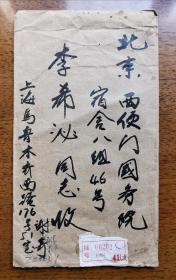 北京 西便门国务院
宿舍八组46号
李希泌 同志收
上海乌鲁木齐西路176弄1室
谢